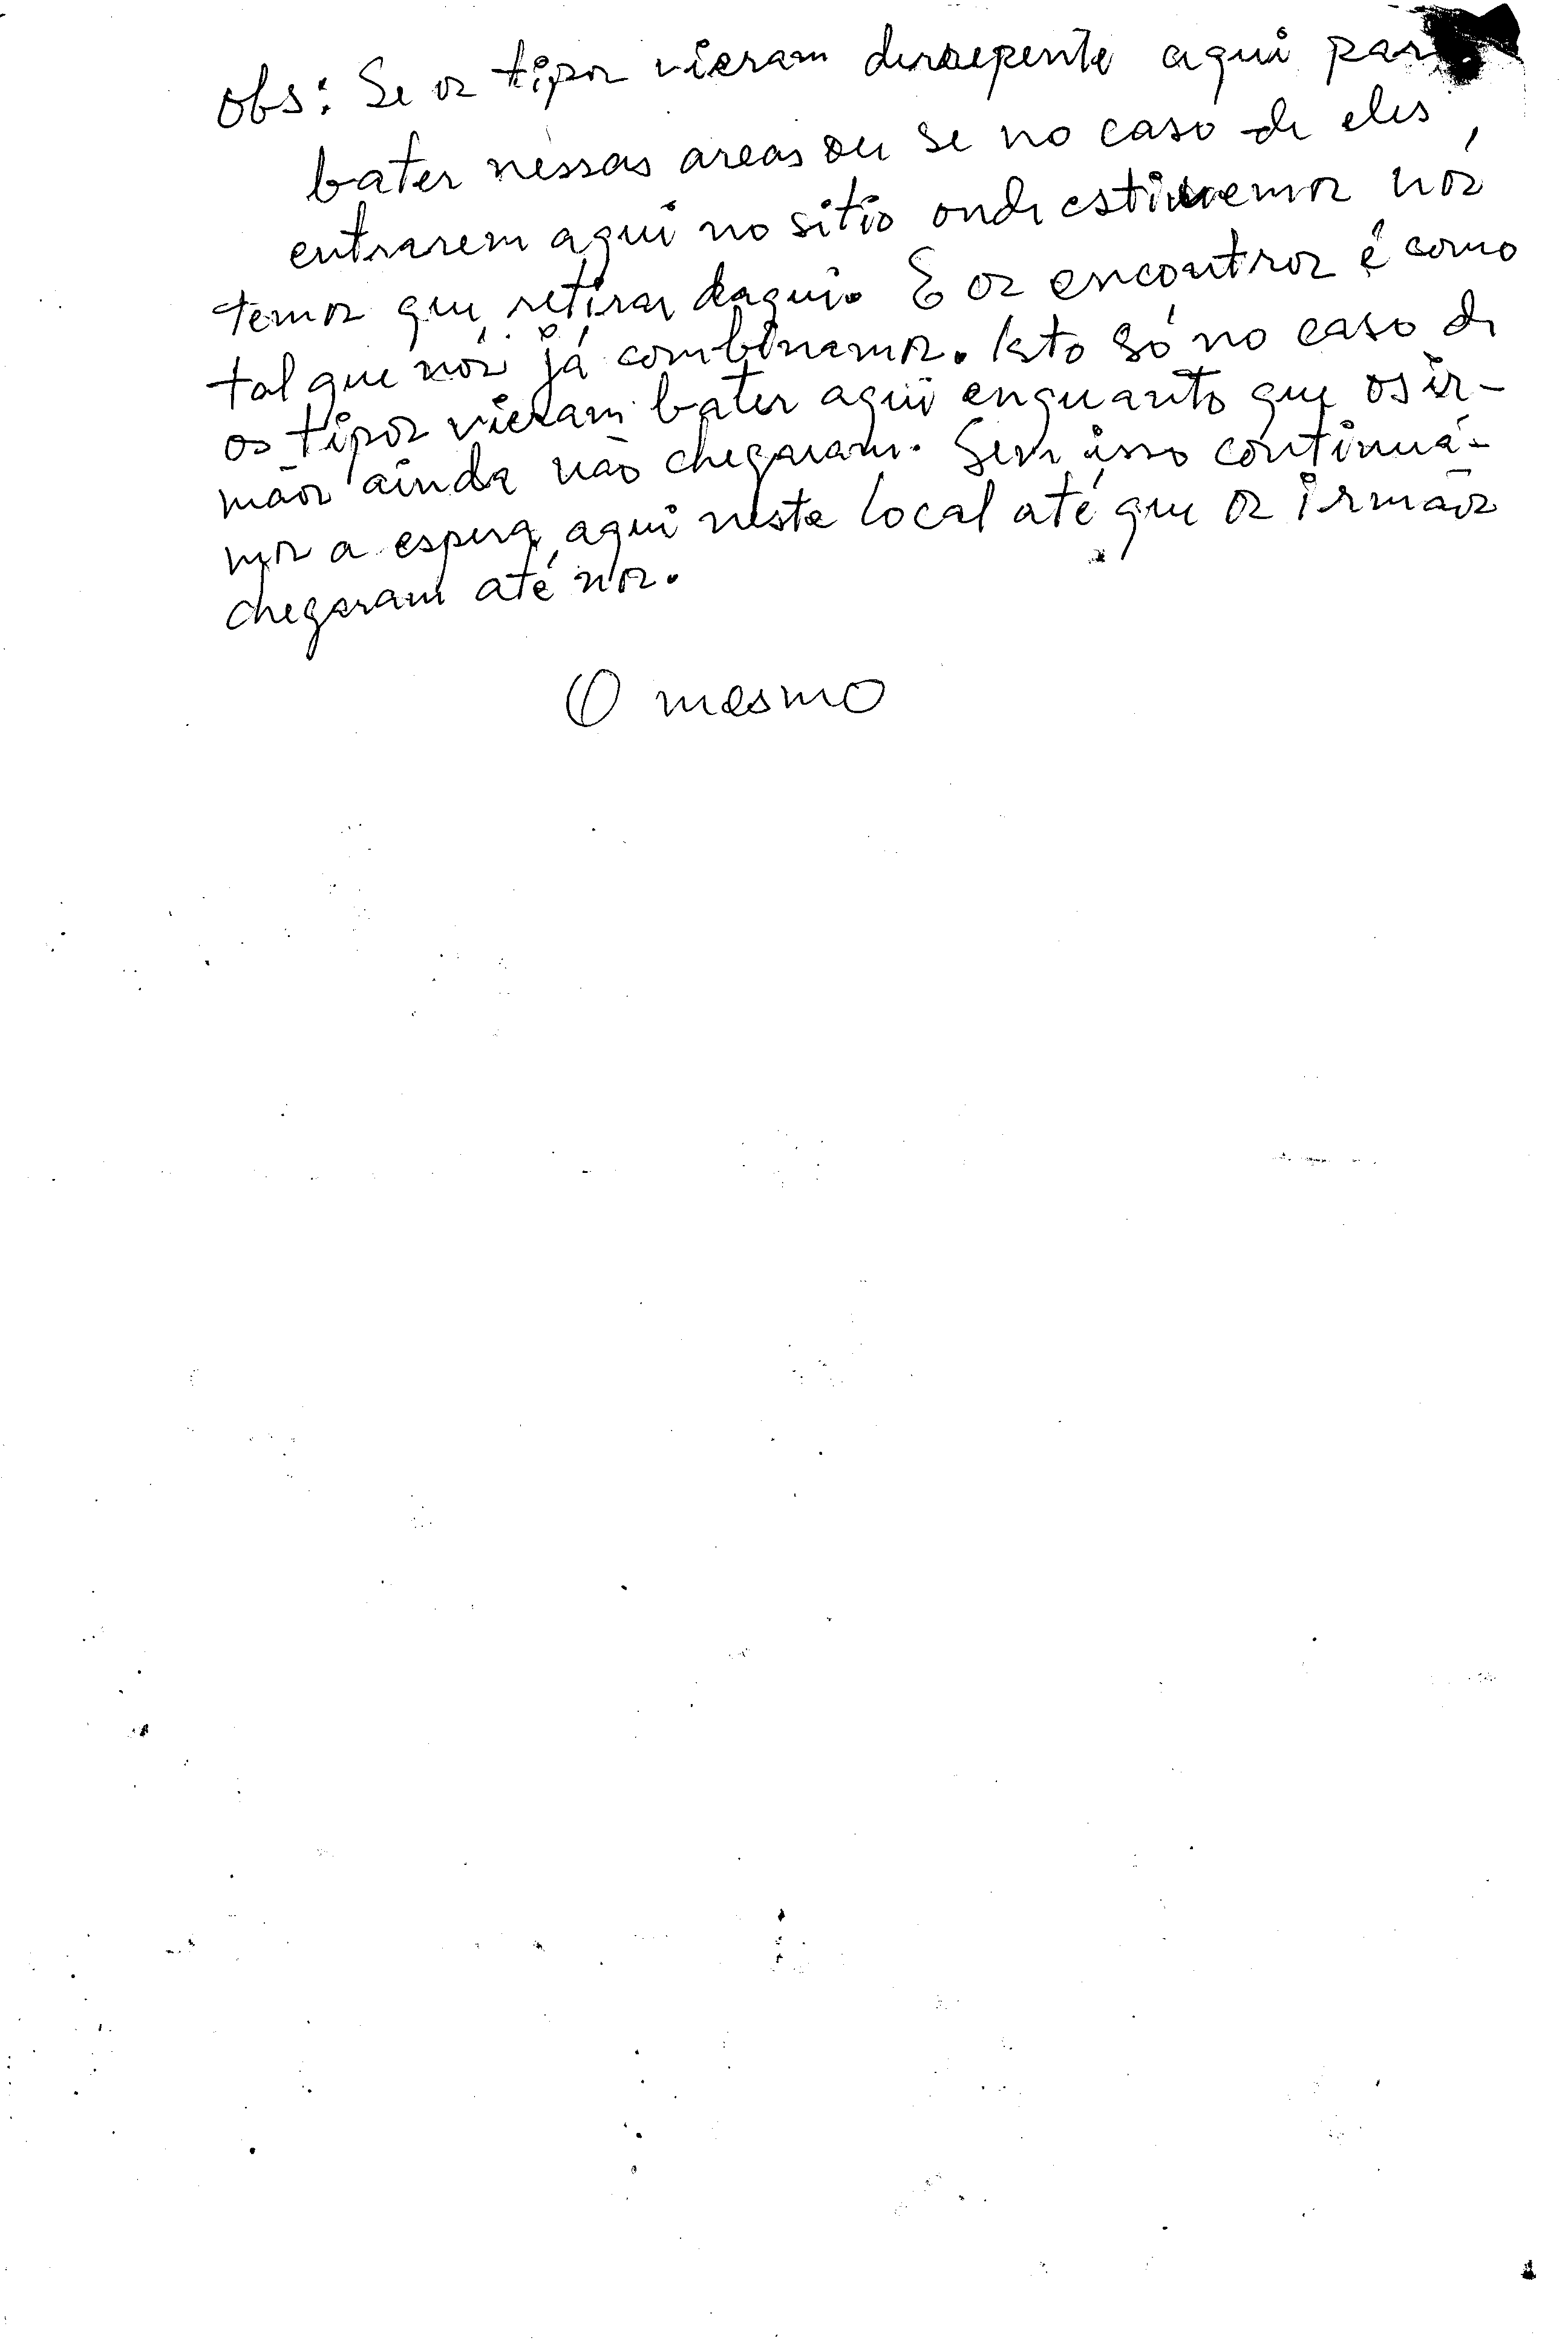 Obs: Se os tipos vieram derrepente aqui para
bater nessas areas ou se no caso de eles
entrarem aqui no sitio onde estivemos nós
temos que retirar daqui. E os encontros é como
tal que nós já combinamos. Isto só no caso de
os tipos vieram bater aqui enquanto que os ir-
mãos ainda não chegaram. Sem isso continuá-
mos a espera aqui neste local até que os irmãos
chegaram até nos.
O mesmo